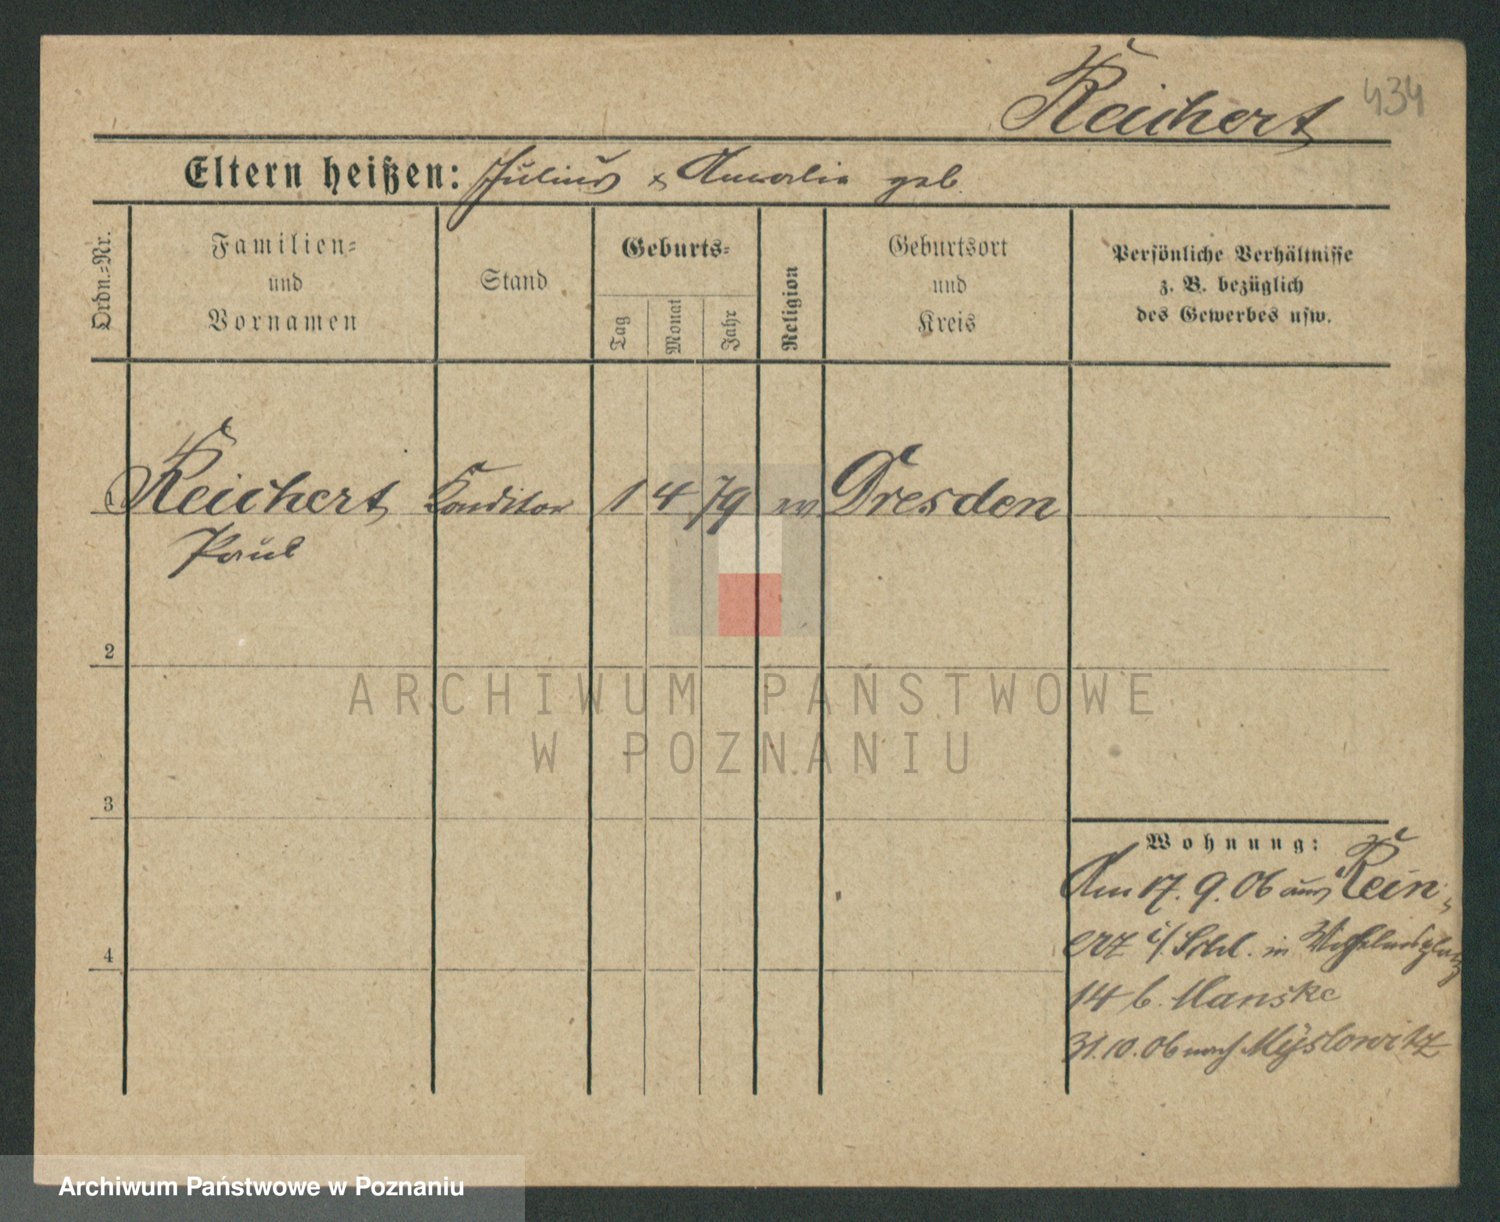 Reichert 434
Eltern heißen: Julius & Amalia geb.
Ordn.=Nr.
Familien=
und
Vornamen
Stand
Geburts=
Tag
Monat
Jahr
Religion
Geburtsort
und
Kreis
Persönliche Verhältnisse
z. B. bezüglich
des Gewerbes usw.
1 Reichert Conditor 1 4 79 Dresden
Paul
2
3
4
Wohnung:
Am 17. 9. 06 aus Rein=
erz i/ Schl. in Wilhelmsplatz
14 b. Manske
31. 10. 06 nach Myslowitz
ARCHIWUM PAŃSTWOWE
W POZNANIU
Archiwum Państwowe w Poznaniu